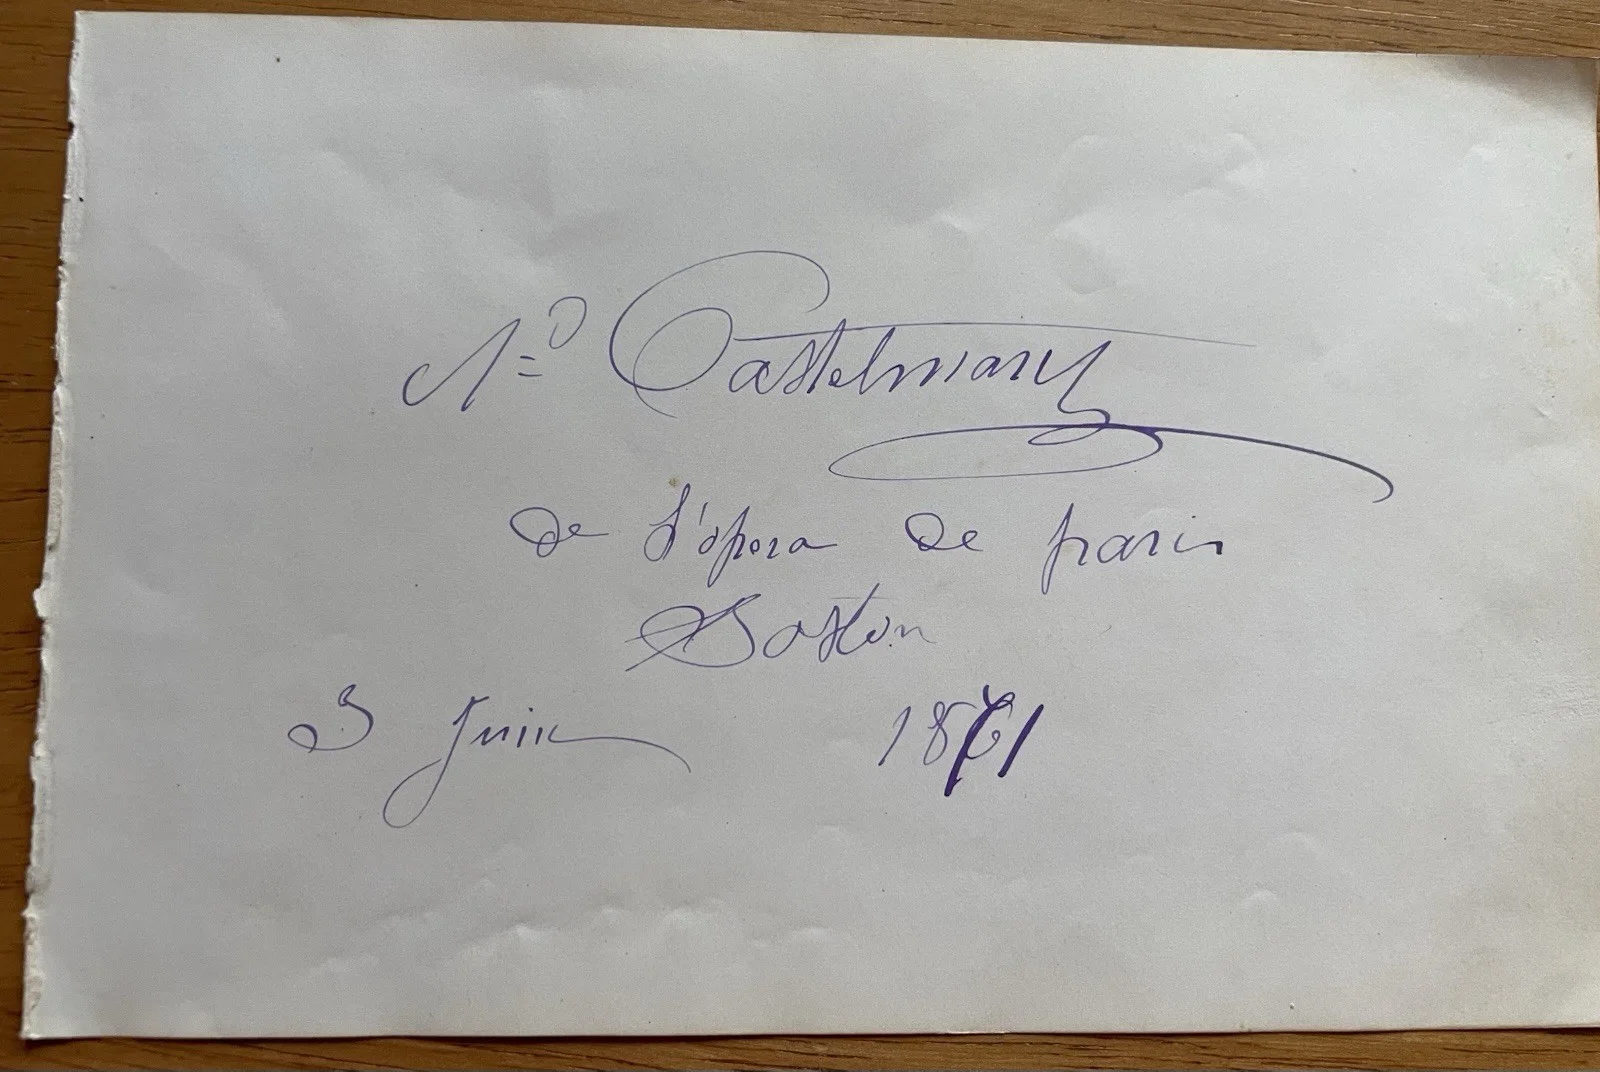 A=d Castelmary
de l'opera de paris
Boston
3 Juin 1871